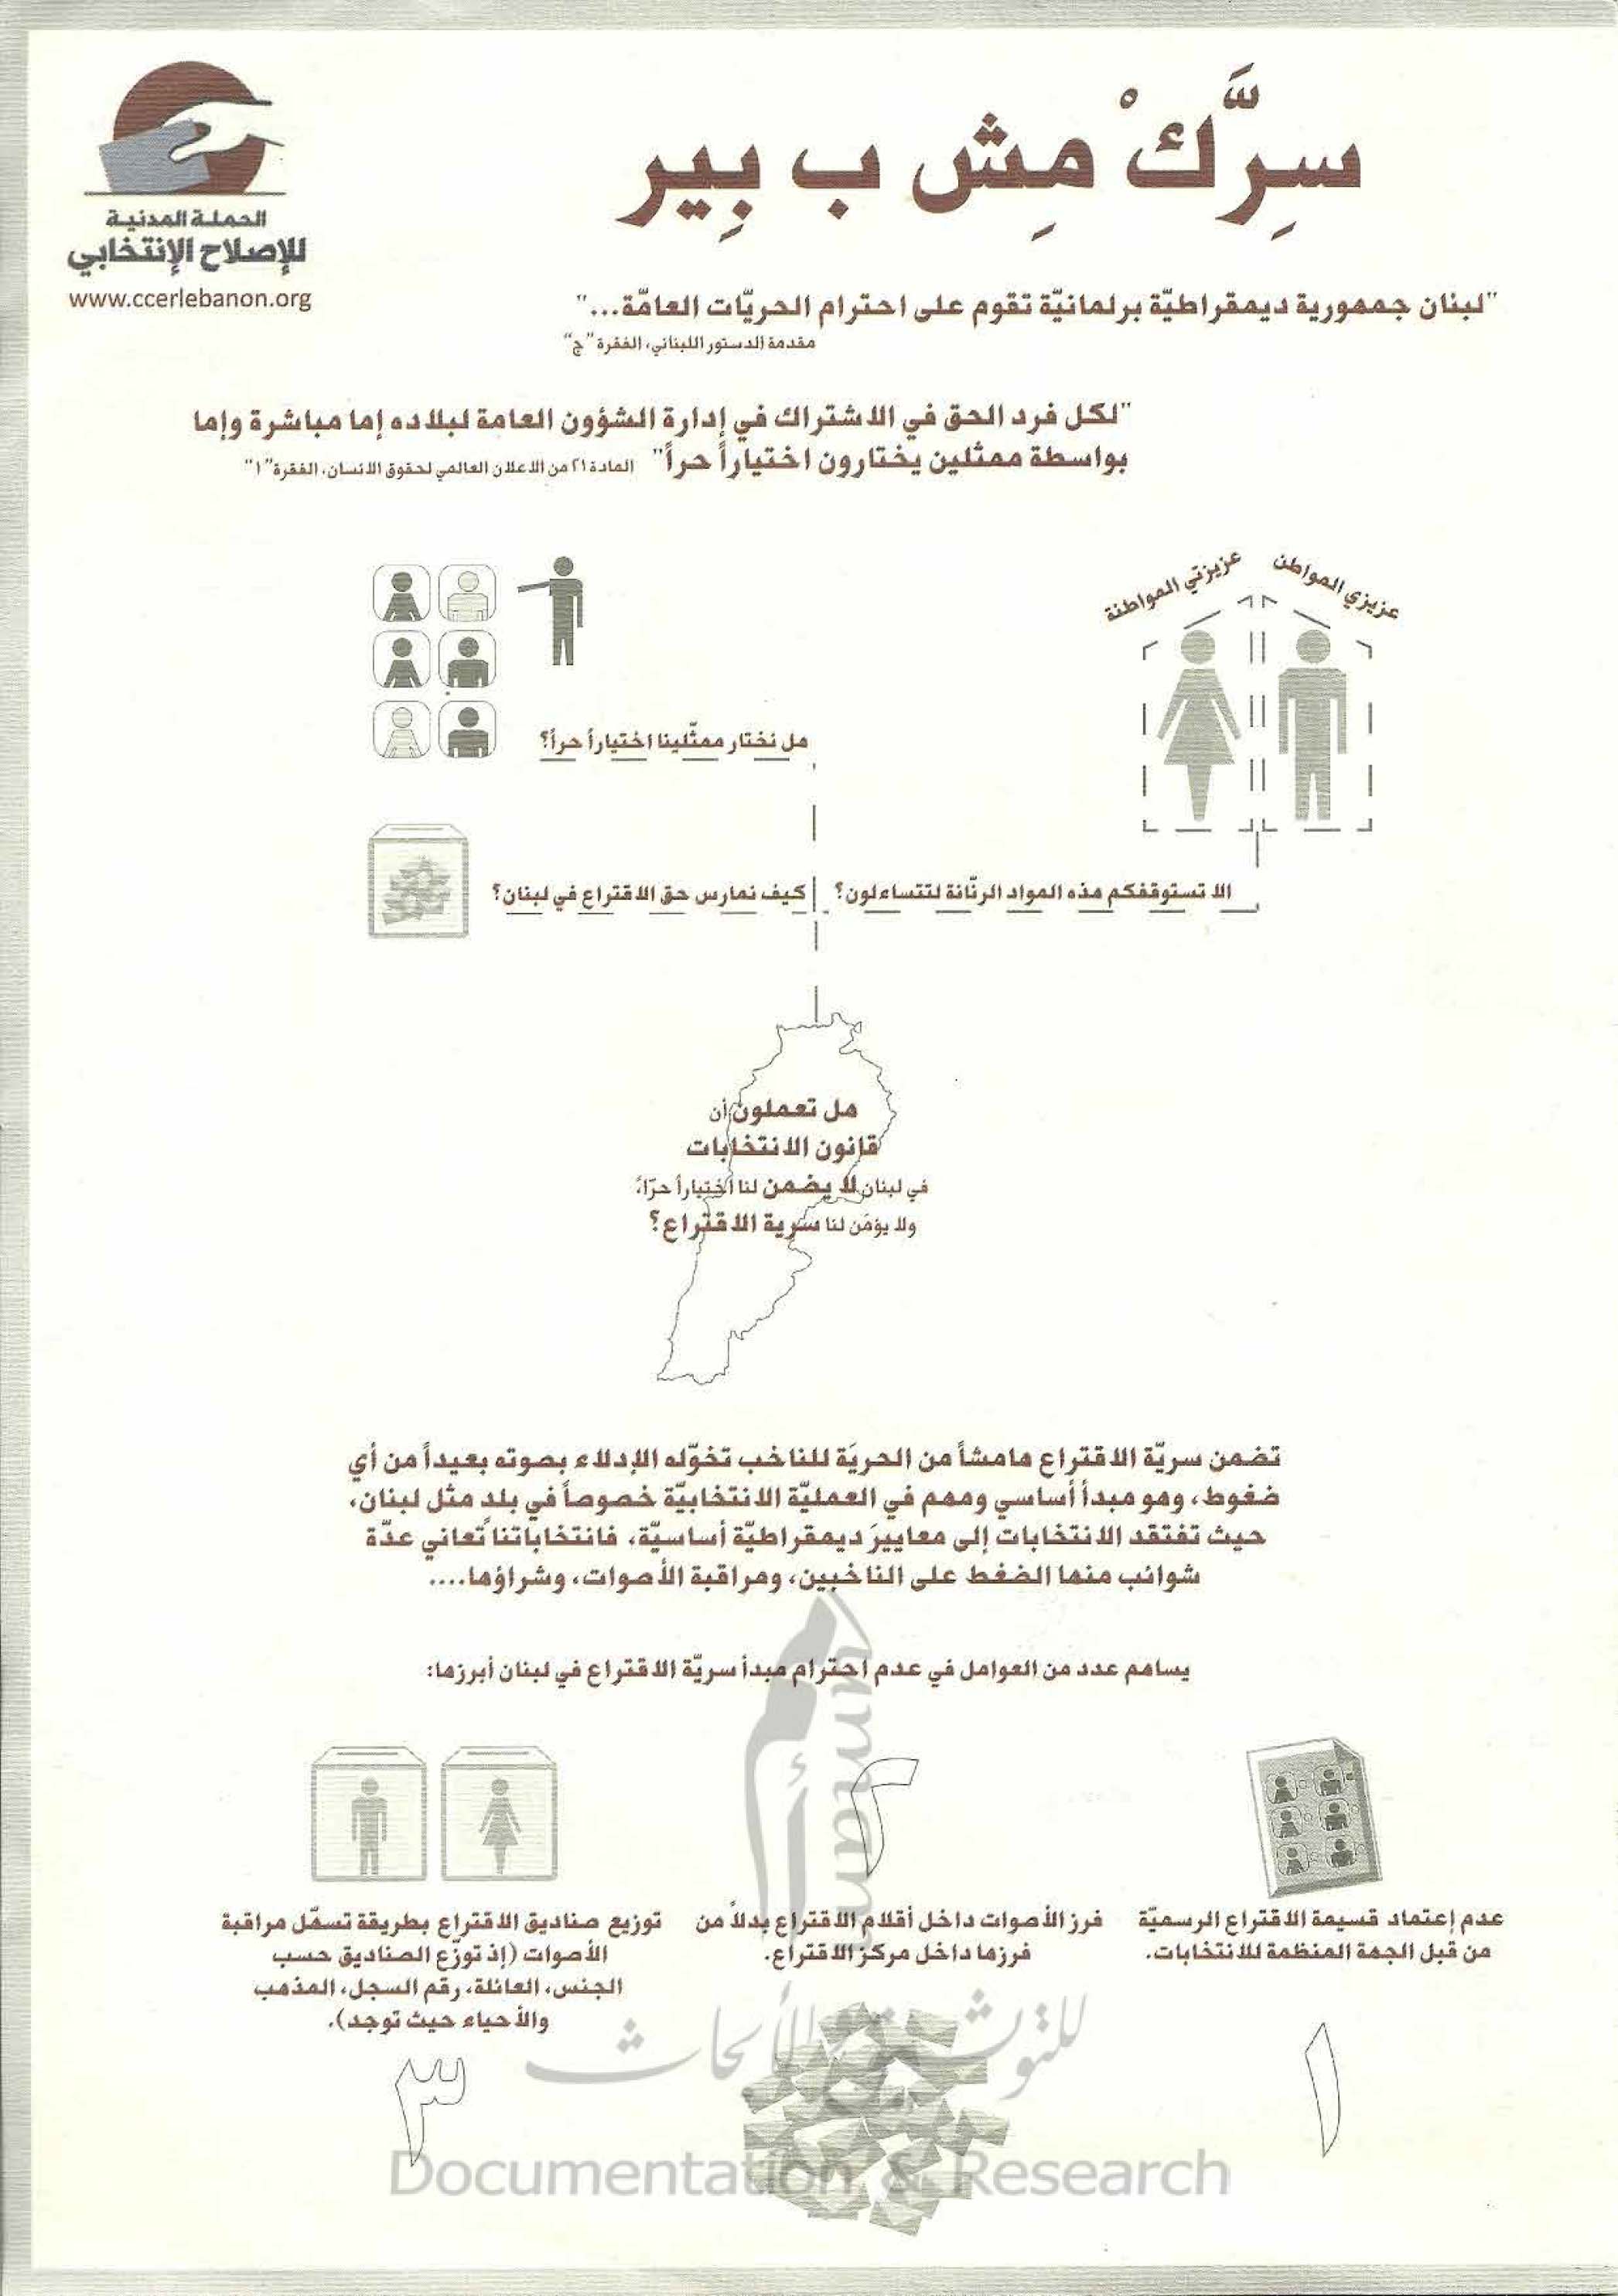 سِرَّكْ مِش ب بِير
الحملة المدنية
للإصلاح الإنتخابي
www.ccerlebanon.org
"لبنان جمهورية ديمقراطيّة برلمانيّة تقوم على احترام الحريّات العامّة..."
مقدمة الدستور اللبناني، الفقرة "ج"
"لكل فرد الحق في الاشتراك في إدارة الشؤون العامة لبلاده إما مباشرة وإما
بواسطة ممثلين يختارون اختياراً حراً" المادة ٢١ من الاعلان العالمي لحقوق الانسان، الفقرة "١"
عزيزي المواطن
عزيزتي المواطنة
هل نختار ممثّلينا اختياراً حراً؟
الا تستوقفكم هذه المواد الرنّانة لتتساءلون؟
كيف نمارس حق الاقتراع في لبنان؟
هل تعملون أن
قانون الانتخابات
في لبنان لا يضمن لنا اختياراً حرّاً،
ولا يؤمّن لنا سرية الاقتراع؟
تضمن سريّة الاقتراع هامشاً من الحريّة للناخب تخوّله الإدلاء بصوته بعيداً من أي
ضغوط، وهو مبدأ أساسي ومهم في العمليّة الانتخابيّة خصوصاً في بلد مثل لبنان،
حيث تفتقد الانتخابات إلى معاييرَ ديمقراطيّة أساسيّة، فانتخاباتنا تعاني عدّة
شوائب منها الضغط على الناخبين، ومراقبة الأصوات، وشراؤها....
يساهم عدد من العوامل في عدم احترام مبدأ سريّة الاقتراع في لبنان أبرزها:
عدم إعتماد قسيمة الاقتراع الرسميّة
من قبل الجهة المنظمة للانتخابات.
١
٢
فرز الأصوات داخل أقلام الاقتراع بدلاً من
فرزها داخل مركز الاقتراع.
توزيع صناديق الاقتراع بطريقة تسهّل مراقبة
الأصوات (إذ توزّع الصناديق حسب
الجنس، العائلة، رقم السجل، المذهب
والأحياء حيث توجد).
٣
أمم
umam
للتوثيق والأبحاث
Documentation & Research